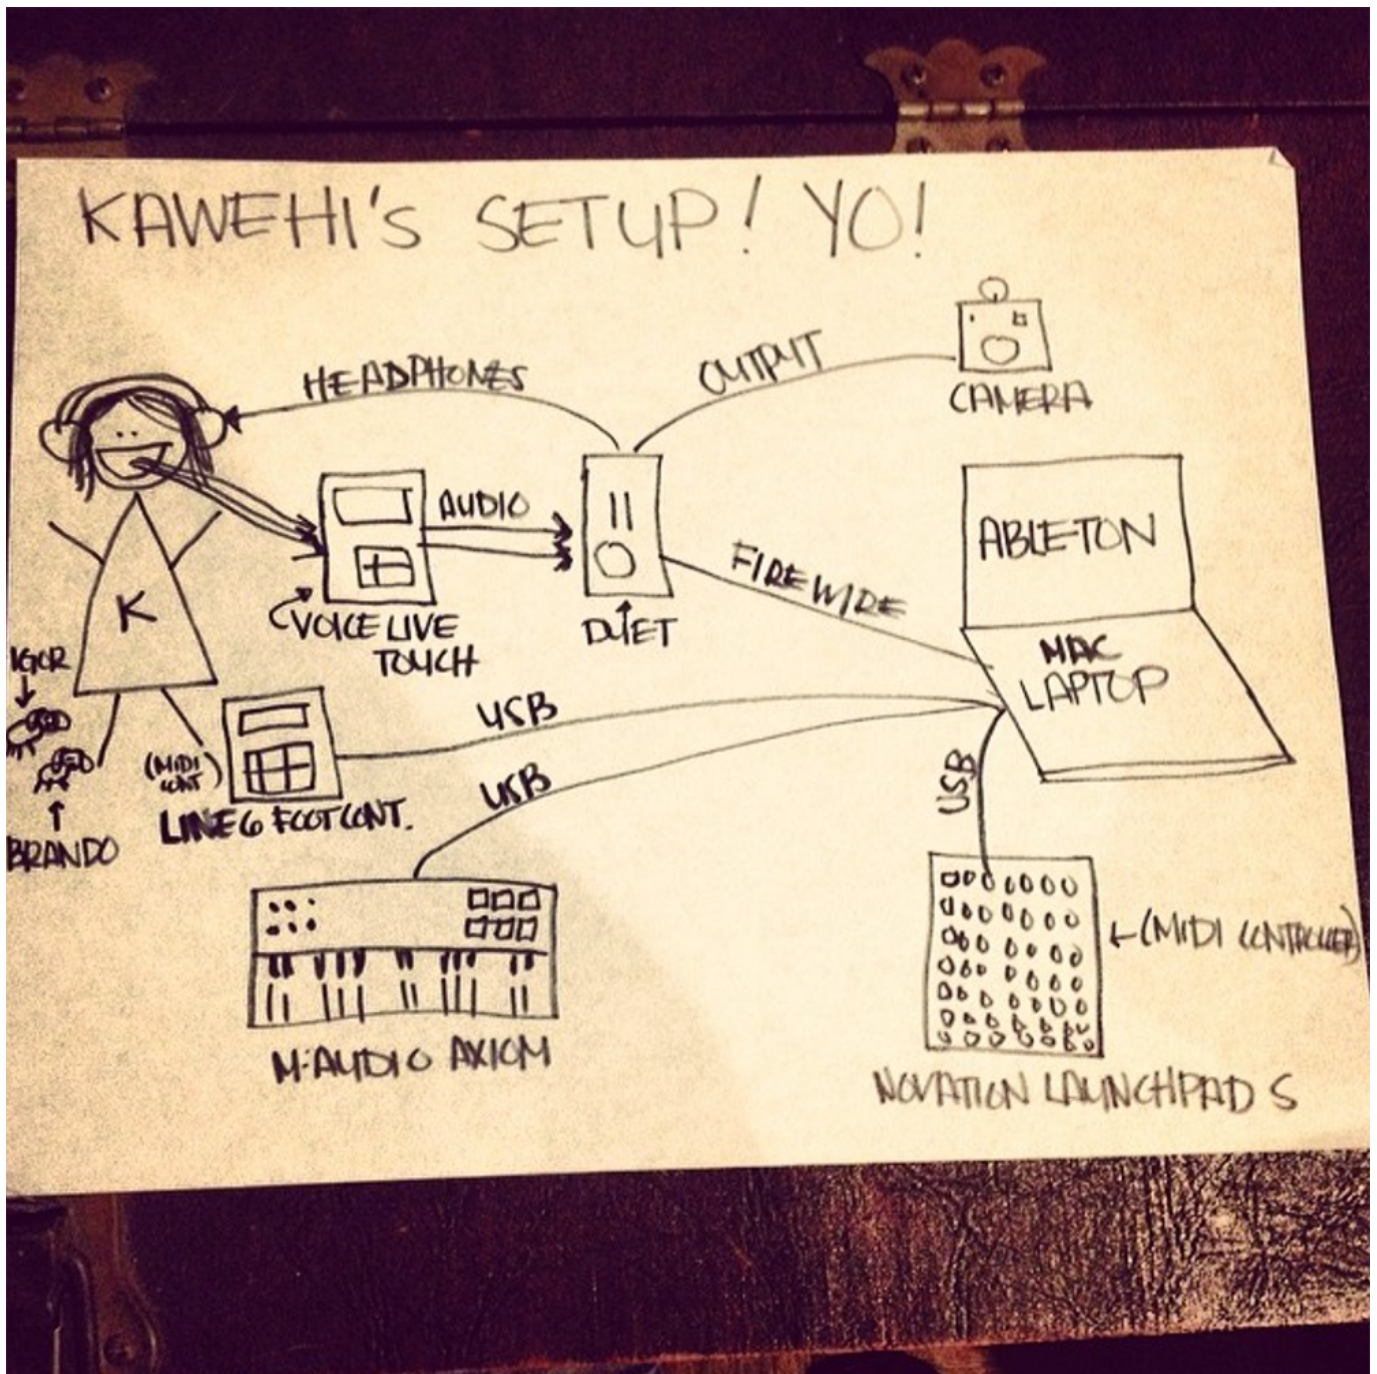 KAWEHI'S SETUP! YO!
HEADPHONES
OUTPUT
CAMERA
AUDIO
VOICE LIVE
TOUCH
DUET
FIREWIRE
ABLETON
MAC
LAPTOP
K
IGOR
BRANDO
(MIDI
CONT)
LINE 6 FOOT CONT.
USB
USB
USB
M-AUDIO AXIOM
(MIDI CONTROLLER)
NOVATION LAUNCHPAD S